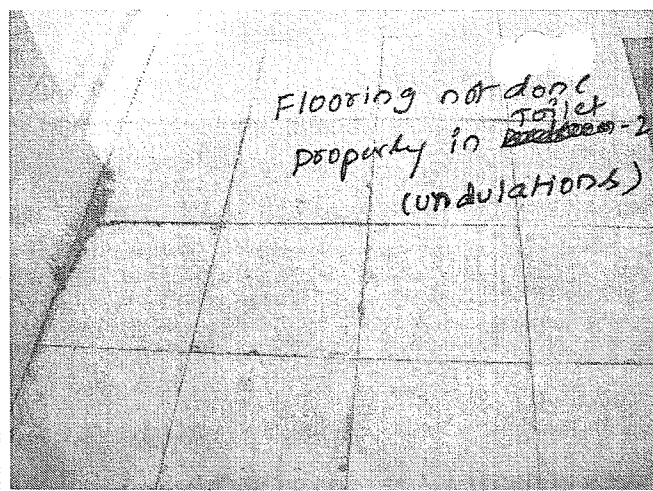 Flooring not done
properly in Toilet -2
(undulations)